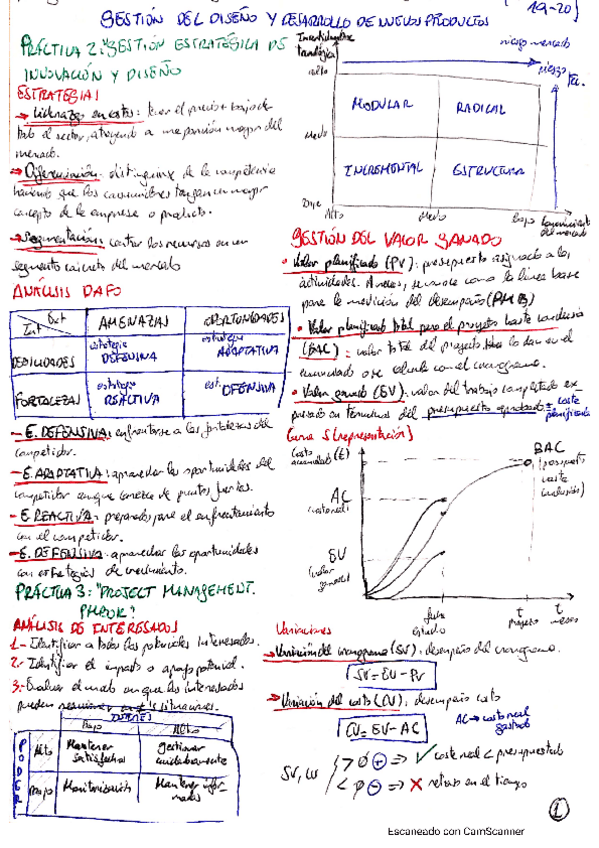 GESTIÓN DEL DISEÑO Y DESARROLLO DE NUEVOS PRODUCTOS
19-20]
PRÁCTICA 2: "GESTIÓN ESTRATÉGICA DE
INNOVACIÓN Y DISEÑO
ESTRATEGIAS
→ Liderazgo en costes: tener el precio + bajo de
todo el sector, atrayendo a una porción mayor del
mercado.
→ Diferenciación: distinguirse de la competencia
haciendo que los consumidores tengan un mayor
concepto de la empresa o producto.
→ Segmentación: centrar los recursos en un
segmento concreto del mercado
ANÁLISIS DAFO
Ext
Int
AMENAZAS
OPORTUNIDADES
DEBILIDADES
estrategia DEFENSIVA
estrategia ADAPTATIVA
FORTALEZAS
estrategia REACTIVA
est. OFENSIVA
- E. DEFENSIVA: enfrentarse a las fortalezas del
competidor.
- E. ADAPTATIVA: aprovechar las oportunidades del
competidor aunque carezca de puntos fuertes.
- E. REACTIVA: preparados para el enfrentamiento
con el competidor.
aprovechar las oportunidades
con estrategias de crecimiento.
PRÁCTICA 3: "PROJECT MANAGEMENT.
PMBOK"
ANÁLISIS DE INTERESADOS
1.- Identificar a todos los potenciales interesados.
2.- Identificar el impacto o apoyo potencial.
3.- Evaluar el modo en que los interesados
pueden reaccionar en ≠s situaciones.
INTERÉS
Bajo
Alto
PODER
Alto
Mantener satisfechos
gestionar cuidadosamente
Bajo
Monitorización
Mantener informados
tecnológica
Alto
riesgo mercado
riesgo tec.
MODULAR
RADICAL
Medio
INCREMENTAL
ESTRUCTURA
Bajo
Alto
Medio
Bajo
del mercado
GESTIÓN DEL VALOR GANADO
• Valor planificado (PV): presupuesto asignado a las
actividades. A veces, se conoce como la línea base
para la medición del desempeño (PMB)
• Valor planificado total para el proyecto hasta conclusión
(BAC): valor total del proyecto.
acumulado o se calcula con el cronograma.
• Valor ganado (EV): valor del trabajo completado ex-
presado en términos del presupuesto aprobado = coste planificado
Curva S (representación)
Costo acumulado (€)
BAC
(presupuesto hasta conclusión)
AC
(coste real)
EV
(valor ganado)
fecha estudio
t proyecto
t meses
Variaciones
→ Variación del cronograma (SV): desempeño del cronograma.
SV = EV - PV
→ Variación del costo (CV): desempeño costo
CV = EV - AC
AC → costo real gastado
SV, CV
> 0 + => ✓ coste real < presupuestado
< 0 - => ✗ retraso en el tiempo
1
Escaneado con CamScanner